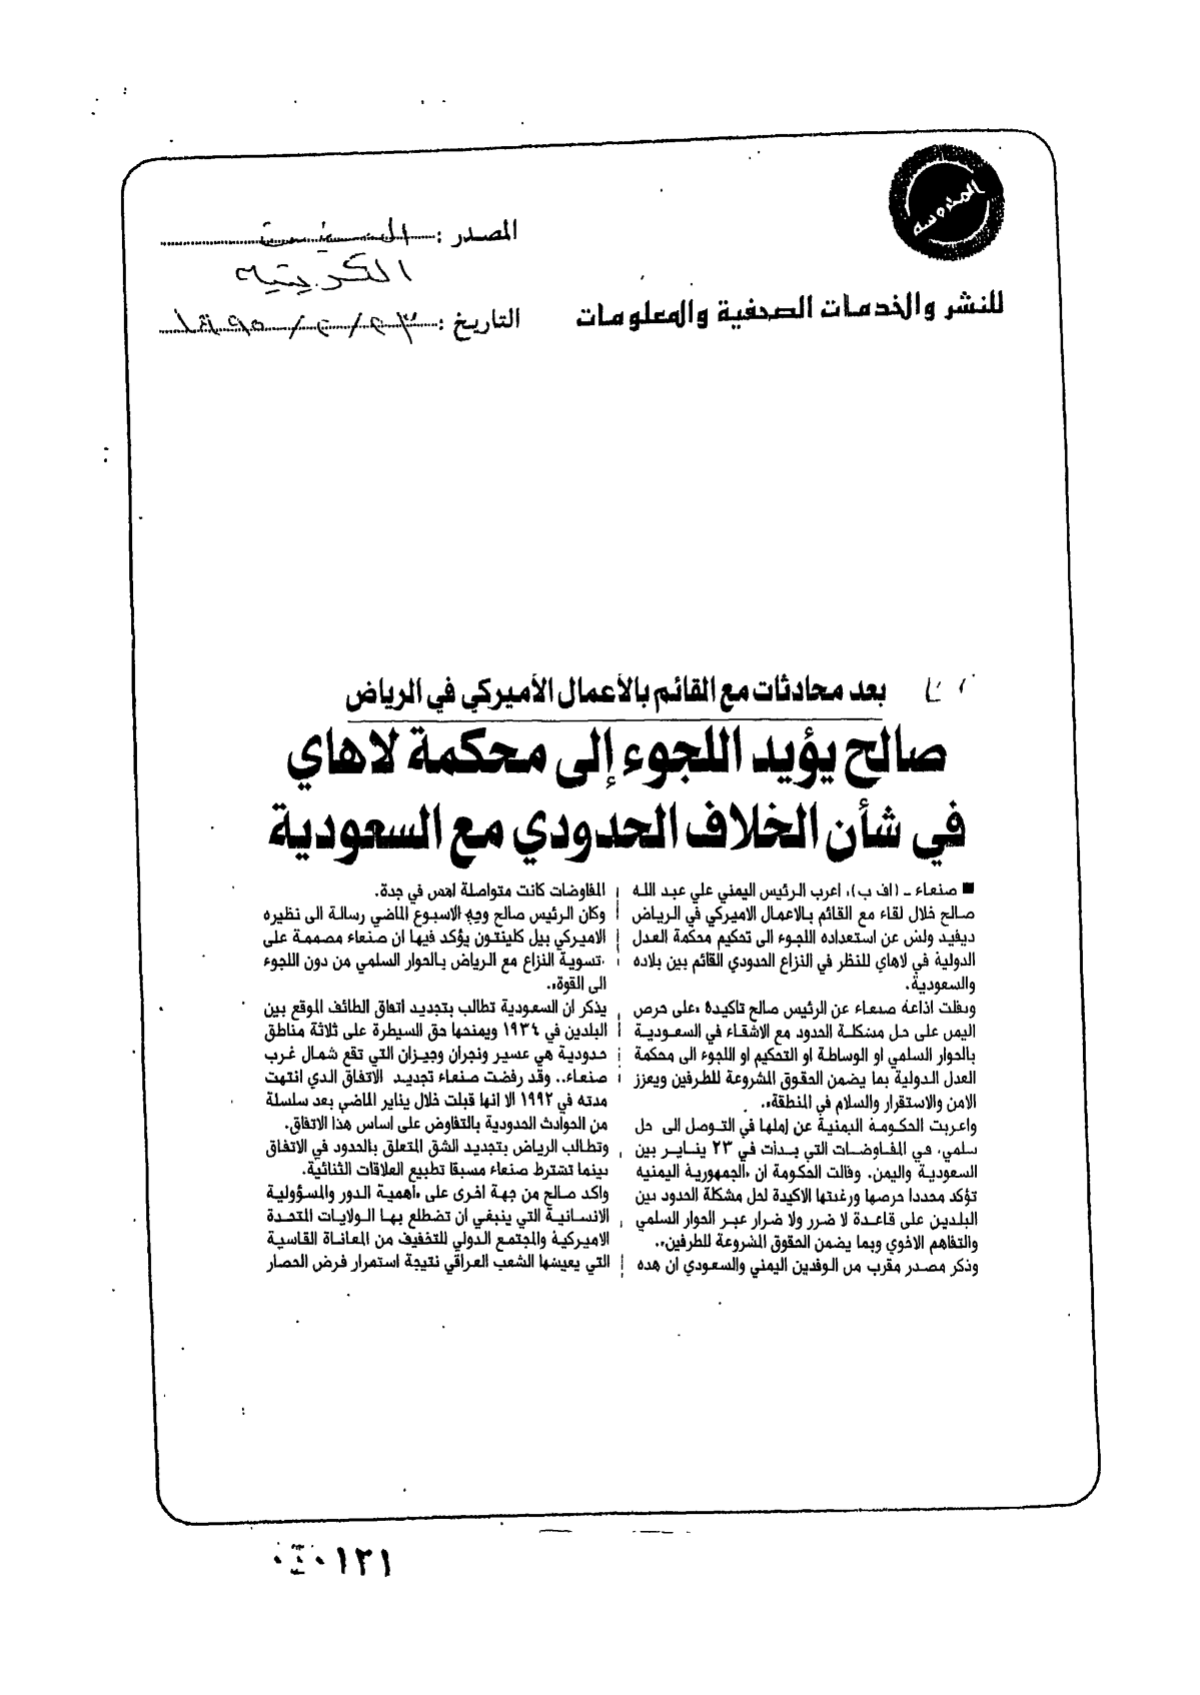 المحروسة
المصدر : السياسة
الكويتية
للنشر والخدمات الصحفية والمعلومات
التاريخ : ٢٣/٢/١٩٩٥
بعد محادثات مع القائم بالأعمال الأميركي في الرياض
صالح يؤيد اللجوء إلى محكمة لاهاي
في شأن الخلاف الحدودي مع السعودية
■ صنعاء ـ (اف ب)، اعرب الرئيس اليمني علي عبد الله
صالح خلال لقاء مع القائم بالاعمال الاميركي في الرياض
ديفيد ولش عن استعداده اللجوء الى تحكيم محكمة العدل
الدولية في لاهاي للنظر في النزاع الحدودي القائم بين بلاده
والسعودية.
ونقلت اذاعة صنعاء عن الرئيس صالح تاكيدة «على حرص
اليمن على حل مشكلة الحدود مع الاشقاء في السعودية
بالحوار السلمي او الوساطة او التحكيم او اللجوء الى محكمة
العدل الدولية بما يضمن الحقوق المشروعة للطرفين ويعزز
الامن والاستقرار والسلام في المنطقة».
واعربت الحكومة اليمنية عن املها في التوصل الى حل
سلمي، في المفاوضات التي بدأت في ٢٣ يناير بين
السعودية واليمن. وقالت الحكومة ان «الجمهورية اليمنيه
تؤكد مجددا حرصها ورغبتها الاكيدة لحل مشكلة الحدود بين
البلدين على قاعدة لا ضرر ولا ضرار عبر الحوار السلمي
والتفاهم الاخوي وبما يضمن الحقوق المشروعة للطرفين».
وذكر مصدر مقرب من الوفدين اليمني والسعودي ان هده
المفاوضات كانت متواصلة امس في جدة.
وكان الرئيس صالح وجه الاسبوع الماضي رسالة الى نظيره
الاميركي بيل كلينتون يؤكد فيها ان صنعاء مصممة على
«تسوية النزاع مع الرياض بالحوار السلمي من دون اللجوء
الى القوة».
يذكر ان السعودية تطالب بتجديد اتفاق الطائف الموقع بين
البلدين في ١٩٣٤ ويمنحها حق السيطرة على ثلاثة مناطق
حدودية هي عسير ونجران وجيزان التي تقع شمال غرب
صنعاء.. وقد رفضت صنعاء تجديد الاتفاق الدي انتهت
مدته في ١٩٩٢ الا انها قبلت خلال يناير الماضي بعد سلسلة
من الحوادث الحدودية بالتفاوض على اساس هذا الاتفاق.
وتطالب الرياض بتجديد الشق المتعلق بالحدود في الاتفاق
بينما تشترط صنعاء مسبقا تطبيع العلاقات الثنائية.
واكد صالح من جهة اخرى على «اهمية الدور والمسؤولية
الانسانية التي ينبغي أن تضطلع بها الولايات المتحدة
الاميركية والمجتمع الدولي للتخفيف من المعاناة القاسية
التي يعيشها الشعب العراقي نتيجة استمرار فرض الحصار